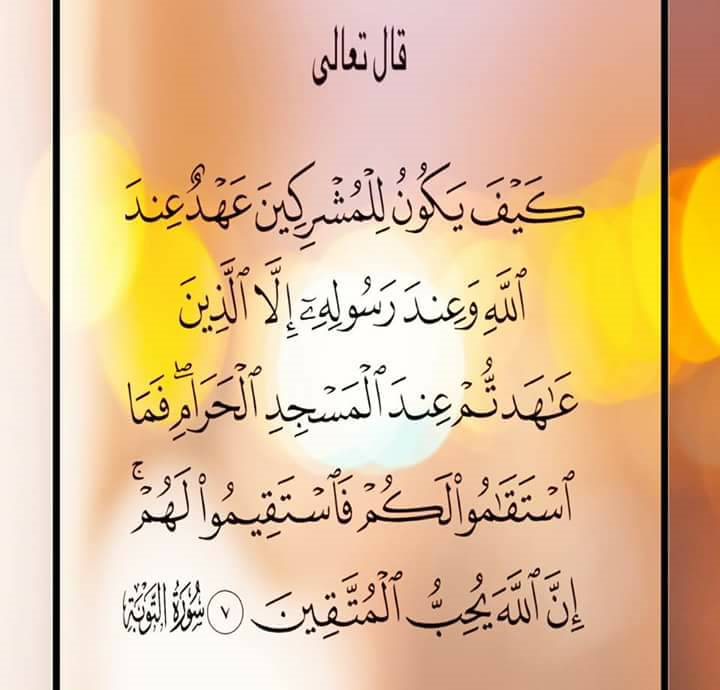 قال تعالى
كَيْفَ يَكُونُ لِلْمُشْرِكِينَ عَهْدٌ عِندَ
ٱللَّهِ وَعِندَ رَسُولِهِۦٓ إِلَّا ٱلَّذِينَ
عَـٰهَدتُّمْ عِندَ ٱلْمَسْجِدِ ٱلْحَرَامِ ۖ فَمَا
ٱسْتَقَـٰمُوا۟ لَكُمْ فَٱسْتَقِيمُوا۟ لَهُمْ ۚ
إِنَّ ٱللَّهَ يُحِبُّ ٱلْمُتَّقِينَ ٧ سُورَةُ التَّوْبَةِ